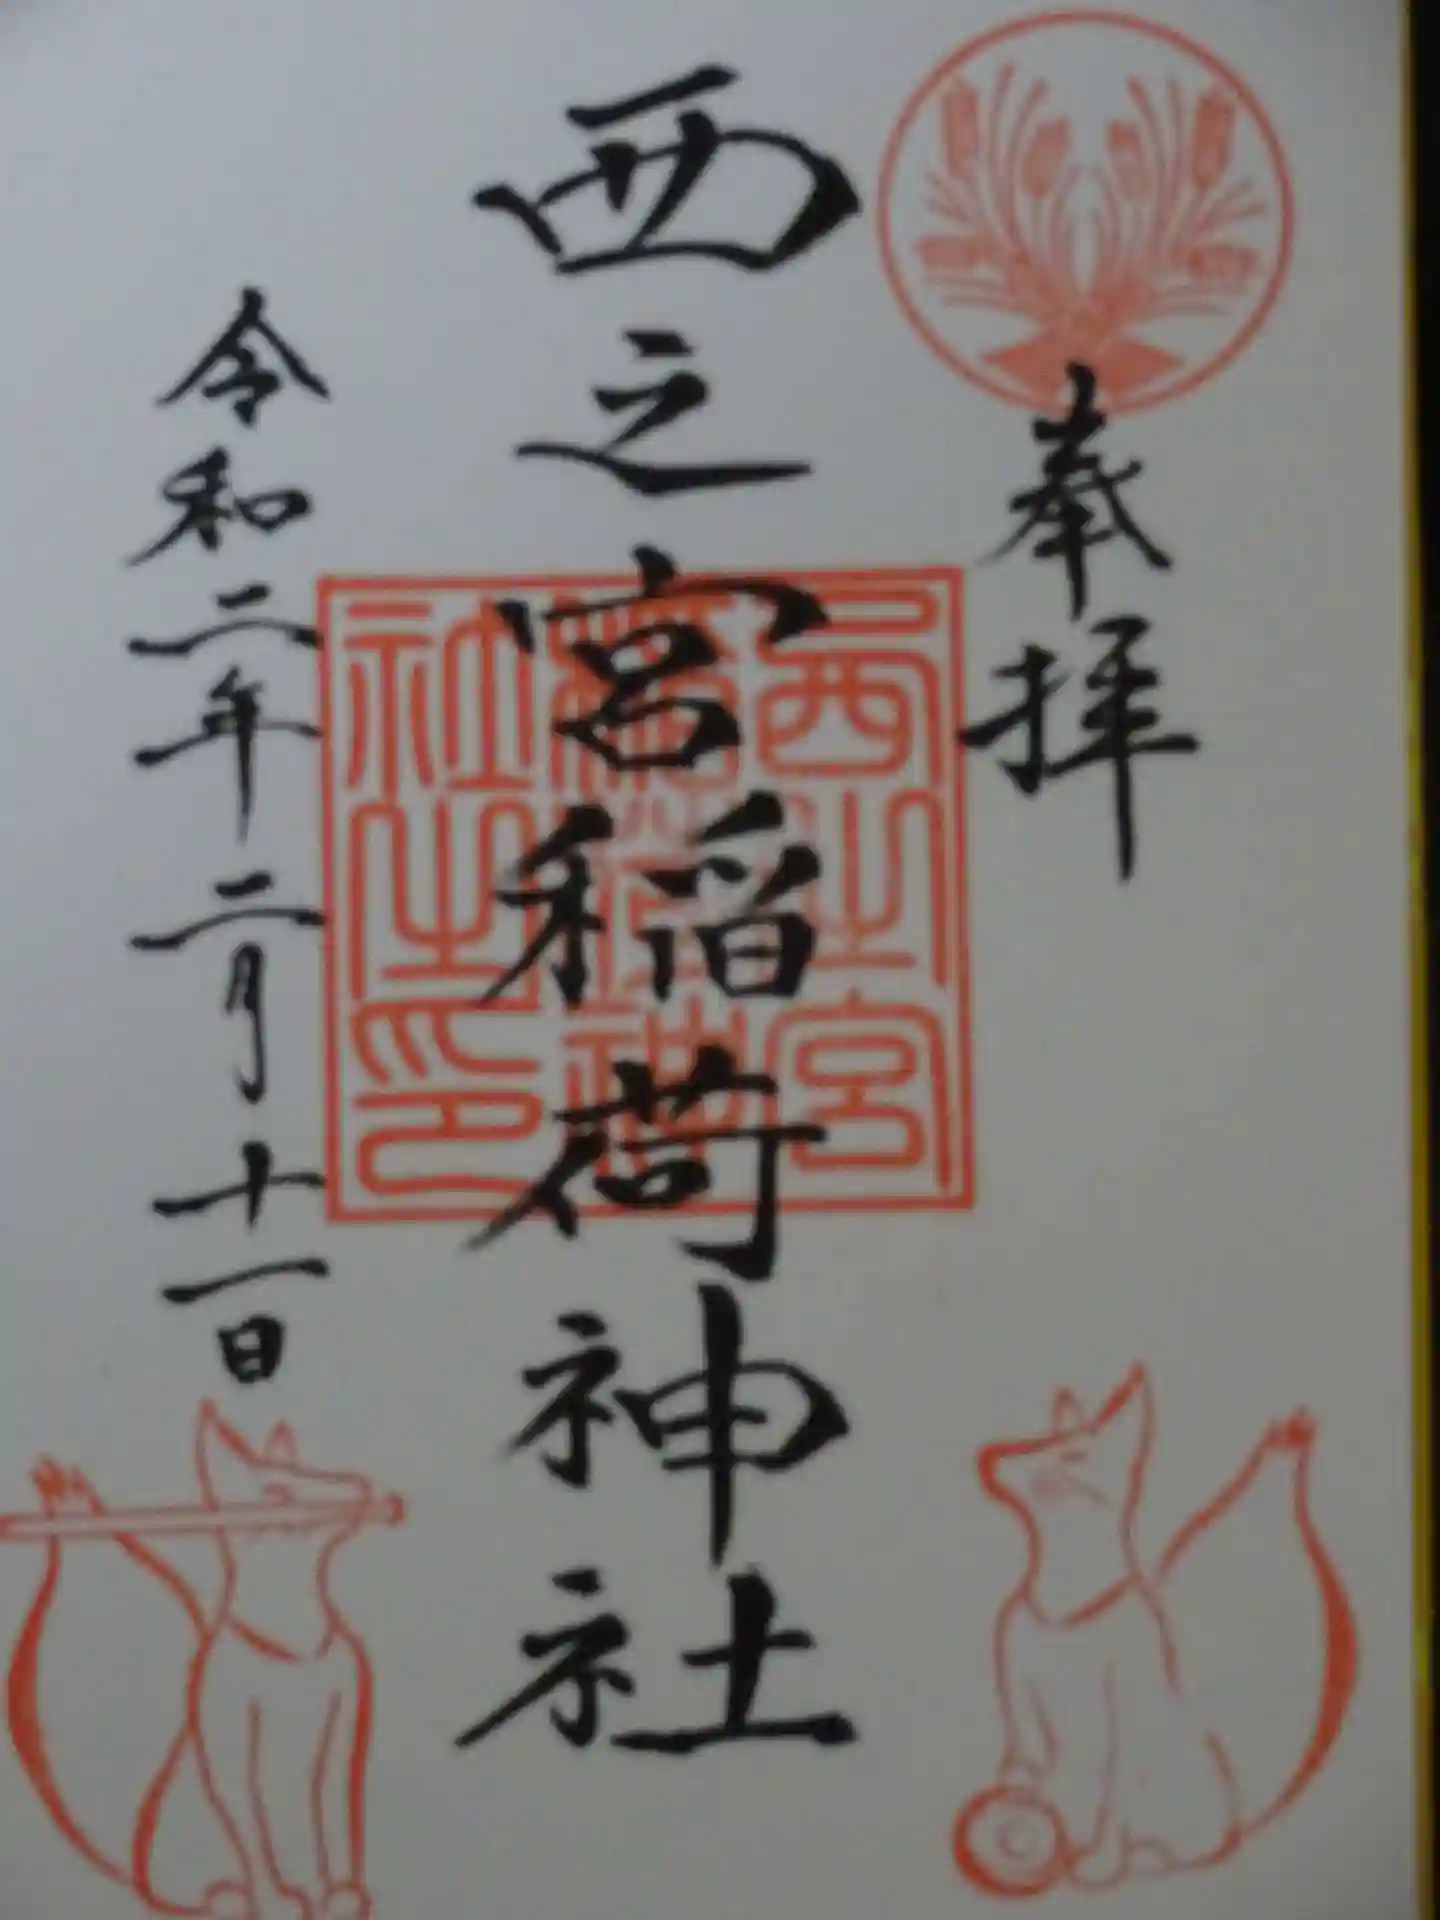 奉拝
西之宮稲荷神社
西之宮
稲荷神
社之印
令和二年二月十一日